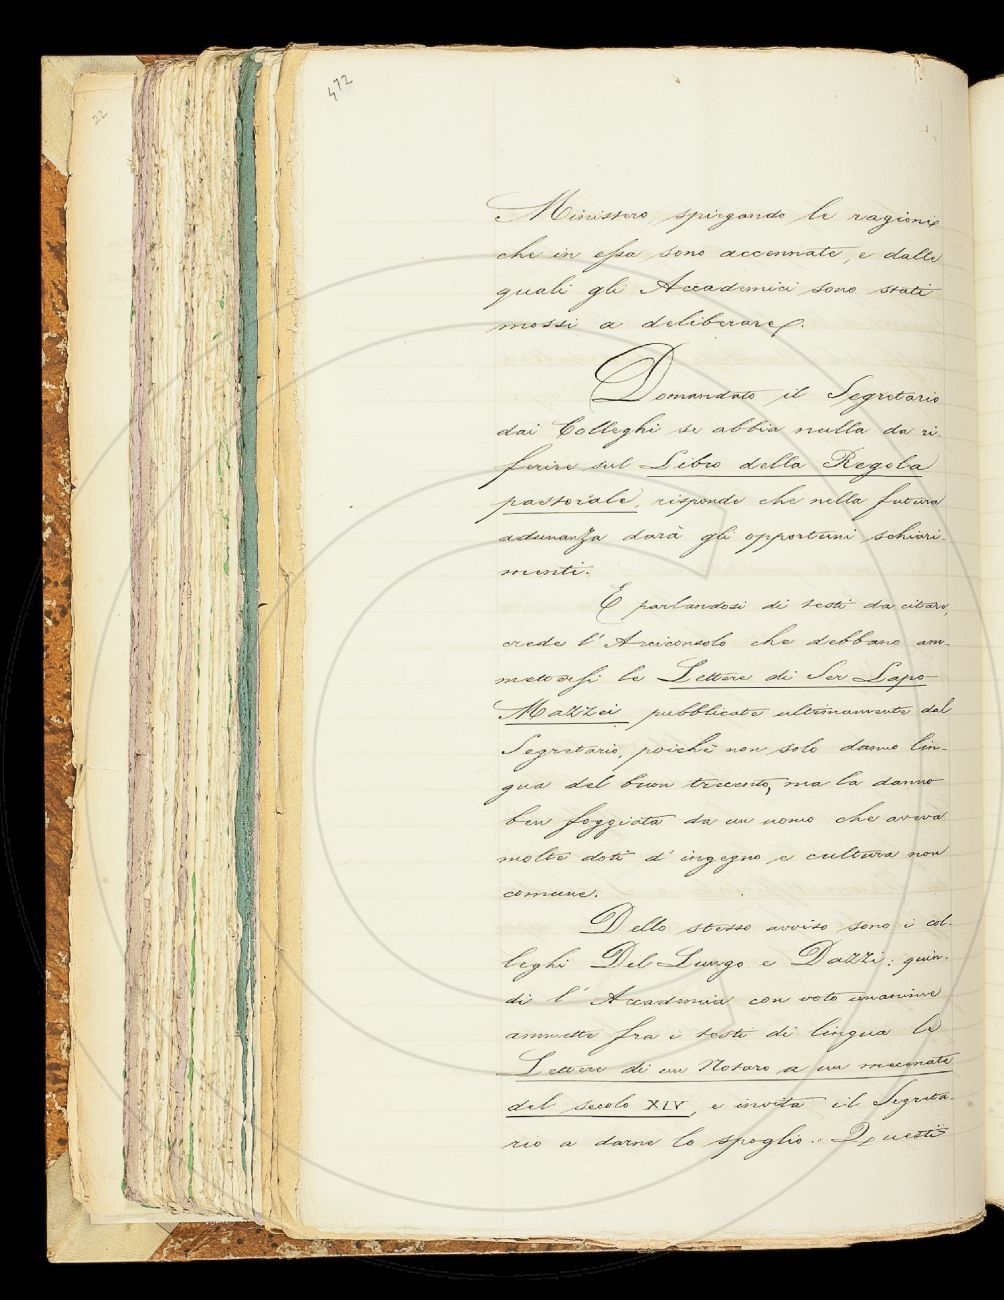 22
472
Ministero, spiegando le ragioni
che in essa sono accennate, e dalle
quali gli Accademici sono stati
mossi a deliberare.
Domandato il Segretario
dai Colleghi se abbia nulla da ri-
ferire sul Libro della Regola
pastorale, risponde che nella futura
adunanza darà gli opportuni schiari-
menti.
E parlandosi di testi da citare,
crede l'Arciconsolo che debbano am-
mettersi le Lettere di Ser Lapo
Mazzei pubblicate ultimamente dal
Segretario, poichè non solo danno lin-
gua del buon trecento, ma la danno
ben foggiata da un uomo che aveva
molte doti d'ingegno e cultura non
comune.
Dello stesso avviso sono i col-
leghi Del Lungo e Dazzi: quin-
di l'Accademia con voto unanime
ammette fra i testi di lingua le
Lettere di un Notaro a un mecenate
del secolo XIV, e invita il Segreta-
rio a darne lo spoglio.: Questi